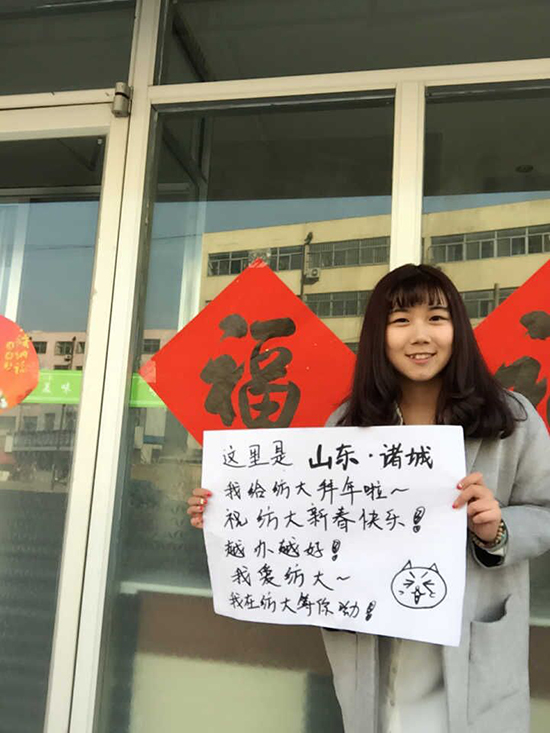 福
这里是 山东·诸城
我给纺大拜年啦~
祝纺大新春快乐!
越办越好!
我爱纺大~
我在纺大等你呦!